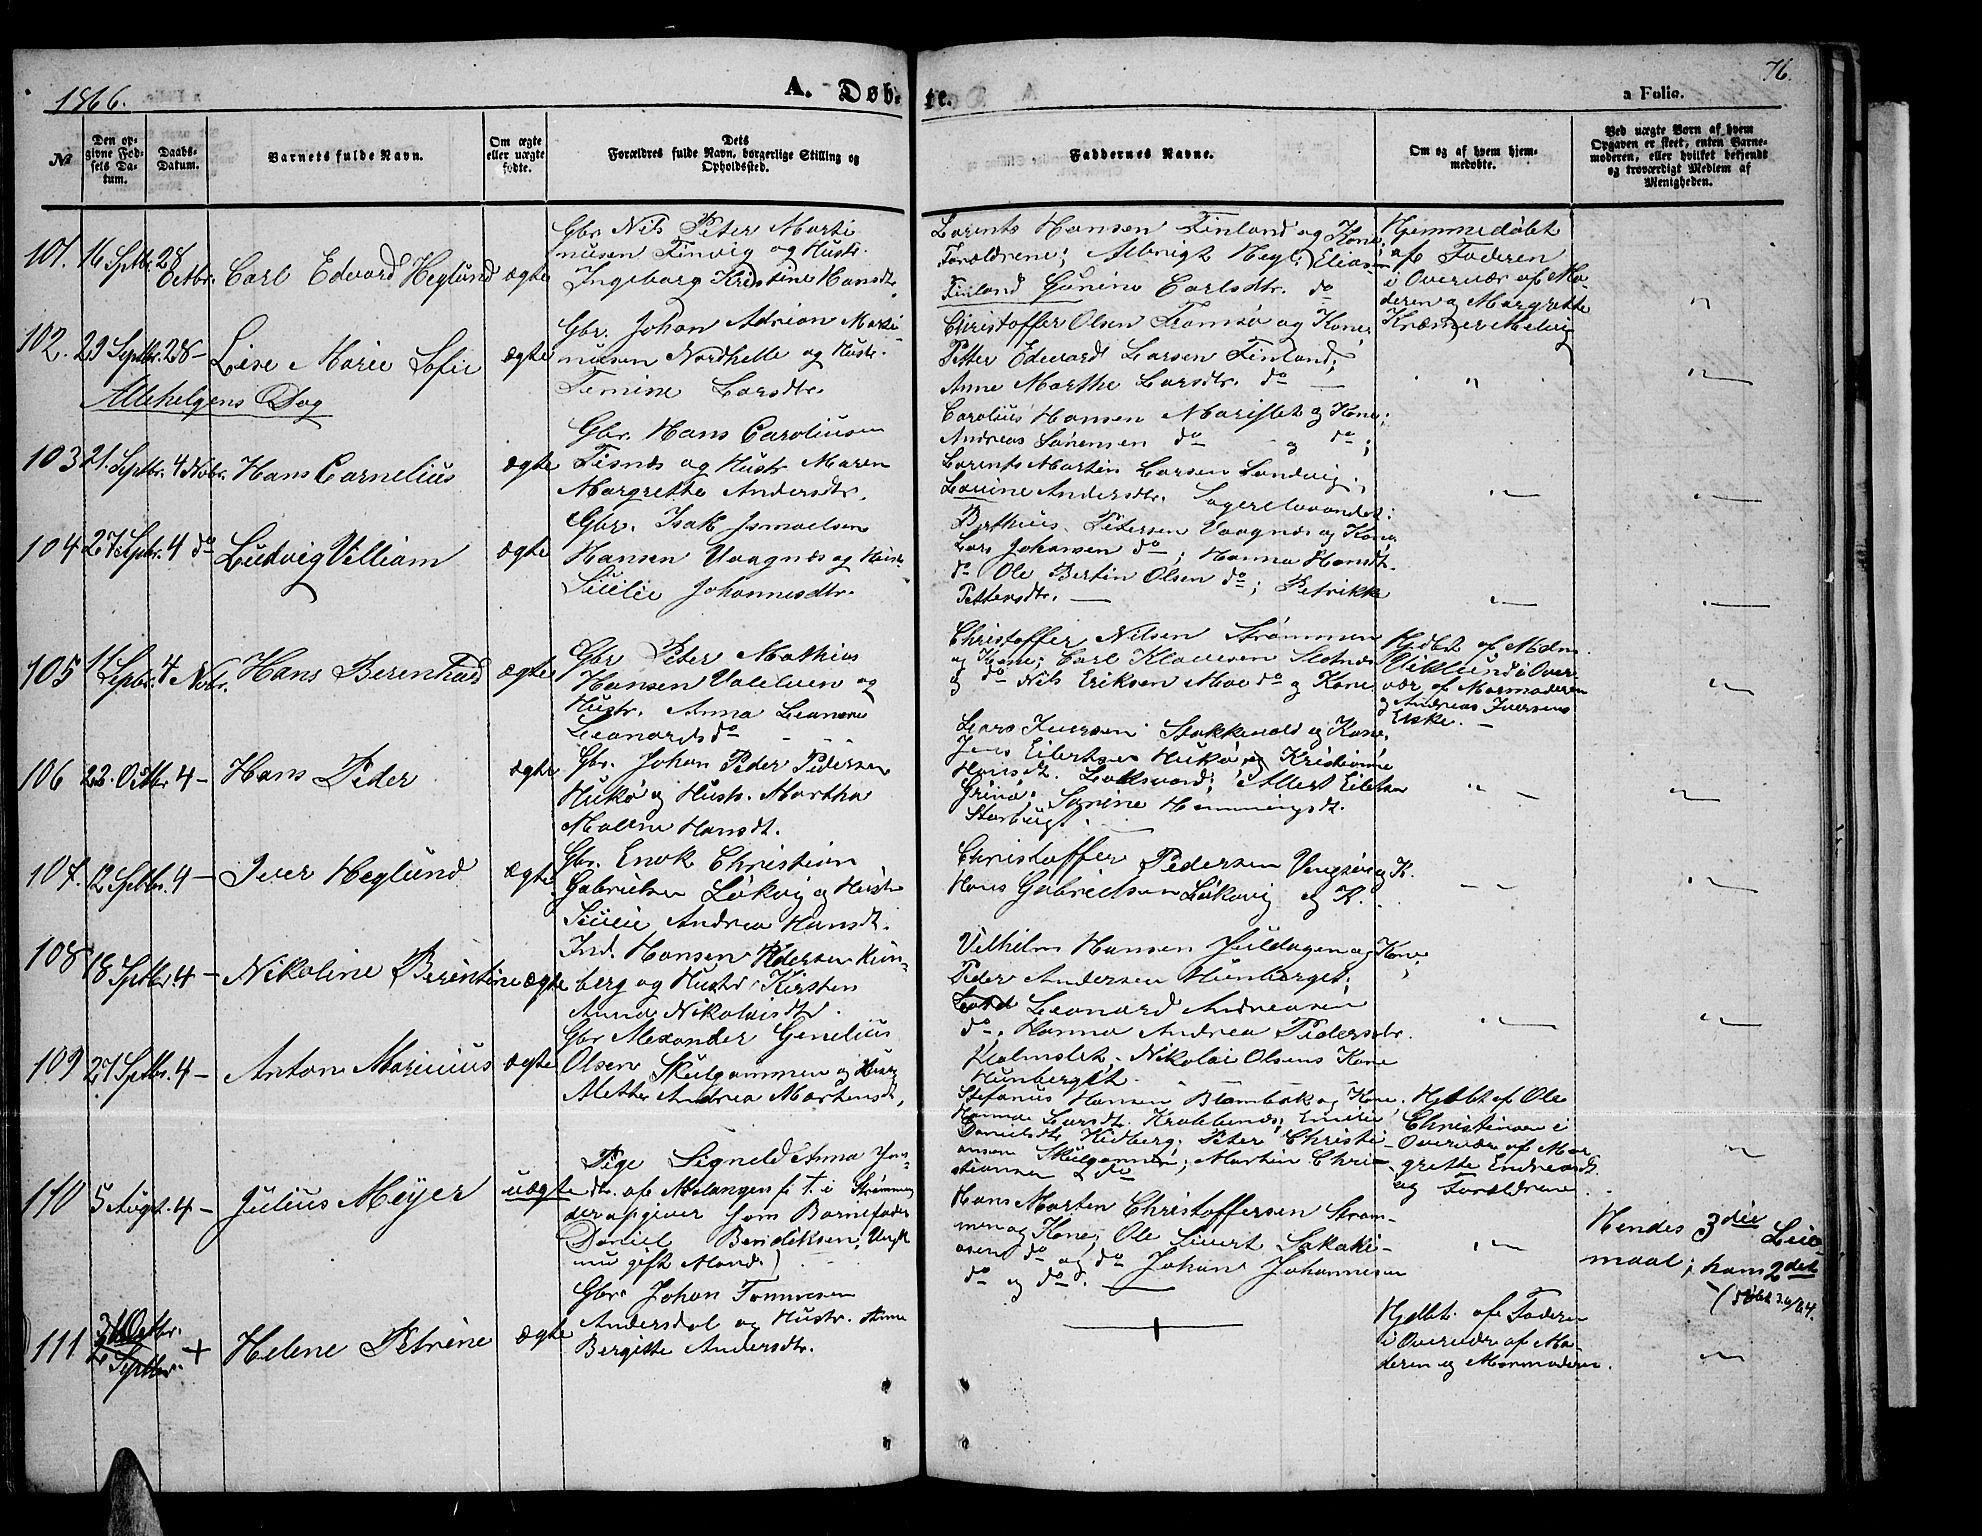 1866.
A. Døb-
te.
76.
a Folio.
№
Den op-
givne Fød-
sels Da-
tum.
Daabs-
Datum.
Barnets fulde Navn.
Om ægte
eller uægte
fødte.
Dets
Forældres fulde Navn, borgerlige Stilling og
Opholdssted.
Faddernes Navne.
Om og af hvem hjem-
medøbte.
Ved uægte Born af hvem
Opgaven er skeet, enten Barne-
moderen, eller hvilket bekjendt
og troværdigt Medlem af
Menigheden.
101. 16 Septbr. 28 Octbr. Carl Edvard Heglund ægte
Gbr. Nils Peter Marti-
nusen Finvig og Hustr.
Ingeborg Kristine Hansdtr.
Lorents Hansen Finland og Kone;
Forældrene; Albrigt Hegl. Elias
Finland Gunine Carlsdtr. do
Hjemmedøbt
af Faderen
i Overvær af Mo-
deren og Margrethe
Kræmer Melvig
102. 29 Septbr. 28 - Lise Marie Sofie ægte
Gbr. Johan Adrian Marti-
nusen Nordhelle og Hustr.
Temine Larsdtr.
Christoffer Olsen Tromsø og Kone;
Petter Edvard Larsen Finland;
Anne Marthe Larsdtr. do —
Allehelgens Dag
103 21. Septbr. 4 Novbr. Hans Cornelius ægte
Gbr. Hans Caroliusen
Tisnes og Hustr. Maren
Margrethe Andersdtr.
Carolius Hansen Marislet og Kone;
Andreas Sørensen do og do;
Lorents Martin Larsen Sandvig;
Lovine Andersdtr.
104 27 Septbr. 4 do Ludvig Villiam ægte
Gbr. Isak Ismaelsen
Hansen Vaagnæs og Hustr.
Sicilie Johannesdtr.
Berthius Pedersen Vaagnæs og Kone
Lars Johansen do; Hanna Hansdt.
do Ole Bertin Olsen do; Petrikke
Pettersdtr. —
105 11 Septbr. 4 Nobr. Hans Berenhard ægte
Gbr Peter Mathias
Hansen og
Hustr. Anna Leanore
Leonards do
Christoffer Nilsen Strømmen
og Kone; Carl Klausen Slotnæs
og do Nils Eriksen Moe do og Kone
Hjdbt af Mdm.
Viklund i Over-
vær af Mormoderen
og Andreas Iversens
Enke. —
106 22. Octbr 4 - Hans Peder ægte
Gbr. Johan Peder Pedersen
Hukø og Hustr. Martha
Malene Hansdt.
Lars Iversen Stokkevold og Kone,
Jens Eilertsen Hukø og Kristianne
Hansdt. ; Albert Eilertsen
Grinø; Sarine Hemmingsdt.
Storbugt.
107. 12 Septbr. 4 - Iver Heglund ægte
Gbr. Enok Christian
Gabrielsen Løkvig og Hustr.
Sicilie Andrea Hansdt.
Christoffer Pedersen Vengsø og K.
Hans Gabrielsen Løkvig og K.
108 18 Septbr. 4 - Nikoline Berentine ægte
Ind. Hansen Pedersen Hun-
berg og Hustr. Kirsten
Anna Nikolaisdtr.
Vilhelm Hansen Juldagen og Kone;
Peder Andersen Hunberget;
Leonard Andreasen
do; Hanna Andrea Pedersdtr.
Holmslet. Nikolai Olsens Kone
Hunberget.
109 27 Septbr. 4 - Anton Marinius ægte
Gbr Alexander Genelius
Olsen Skulgammen og Hustr.
Mette Andrea Martensdt.
Stefanus Hansen og Kone;
Hanna Larsdt. Emilie
Danielsdt. Hidberg; Peter Christi-
ansen Skulgammen; Martin Chri-
stiansen do
Hjdbt af Ole
Christiansen i
Overvær af Mar-
grethe Endreasdt.
og Forældrene.
110 5 Augt. 4 - Julius Meyer uægte
Pige Signeld Anna Jon-
dt. af Malangen f. t. i Strømmen
der opgiver som Barnefader
Daniel Bendiksen, Ungk
nu gift Mand.)
Hans Morten Christoffersen Strøm-
men og Kone; Ole Sivert Sakari-
asen do og do Johan Johannesen
do og do. —
Hendes 3die Leier-
maal; hans 2det
111 31 Octbr. 2 Septbr. + Helene Petrine ægte
Gbr. Johan Tommesen
Andersdal og Hustr. Anne
Bergitte Andersdtr.
Hjdbt. af Faderen
i Overvær af Mo-
deren og Mormoderen.